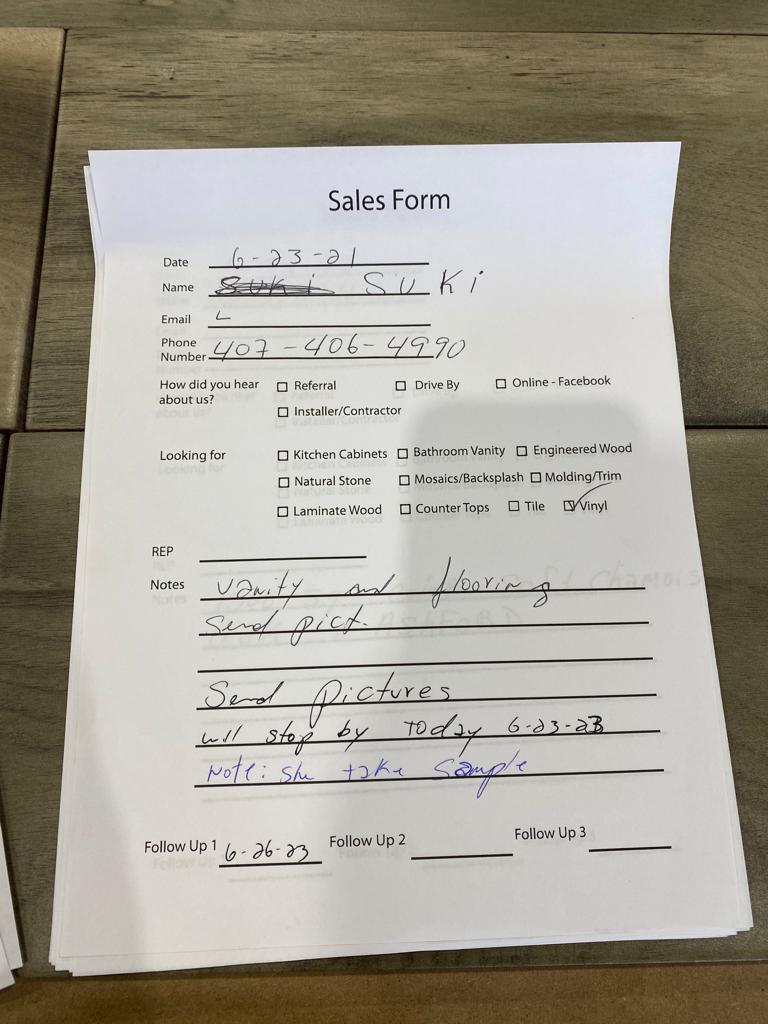 Sales Form
Date 6-23-21
Name Suki SUKi
Email
Phone
Number 407-406-4990
How did you hear
about us?
☐ Referral ☐ Drive By ☐ Online - Facebook
☐ Installer/Contractor
Looking for
☐ Kitchen Cabinets ☐ Bathroom Vanity ☐ Engineered Wood
☐ Natural Stone ☐ Mosaics/Backsplash ☐ Molding/Trim
☐ Laminate Wood ☐ Counter Tops ☐ Tile ☑ Vinyl
REP
Notes vanity and flooring
Send pict.
Send pictures
will stop by today 6-23-23
Note: she take sample
Follow Up 1 6-26-23 Follow Up 2 Follow Up 3